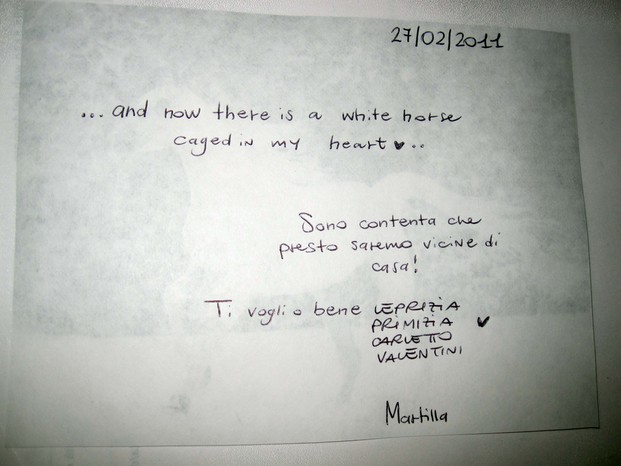 27/02/2011
... and now there is a white horse
caged in my heart ♥..
Sono contenta che
presto saremo vicine di
casa!
Ti voglio bene LEPRIZIA
PRIMIZIA ♥
CARLETTO
VALENTINI
Martilla